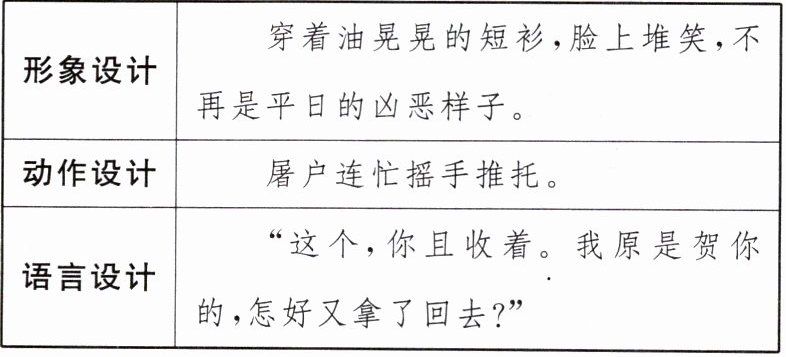 形象设计
穿着油晃晃的短衫,脸上堆笑,不
再是平日的凶恶样子。
动作设计
屠户连忙摇手推托。
语言设计
“这个,你且收着。我原是贺你
的,怎好又拿了回去?”